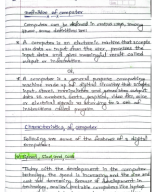 Definition of computer
Computer can be defined in various ways, among
these, some definitions are:
A computer is an electronic machine that accepts
raw data as input from the user, processes the
input data and gives meaningful result called
output or information
OR
A computer is a general purpose computing
machine made up of digital circuitry that accepts
input, stores, manipulates and generates output
data as numbers, text, graphics,
or electrical signals according to a set of
instructions called program
Characteristics of computer
Following are some of the features of a digital
computer:
Today with the development in the computer
technology, the speed is increasing and the size and
cost are decreasing. Because of development in
technology, smaller, portable computers like laptop